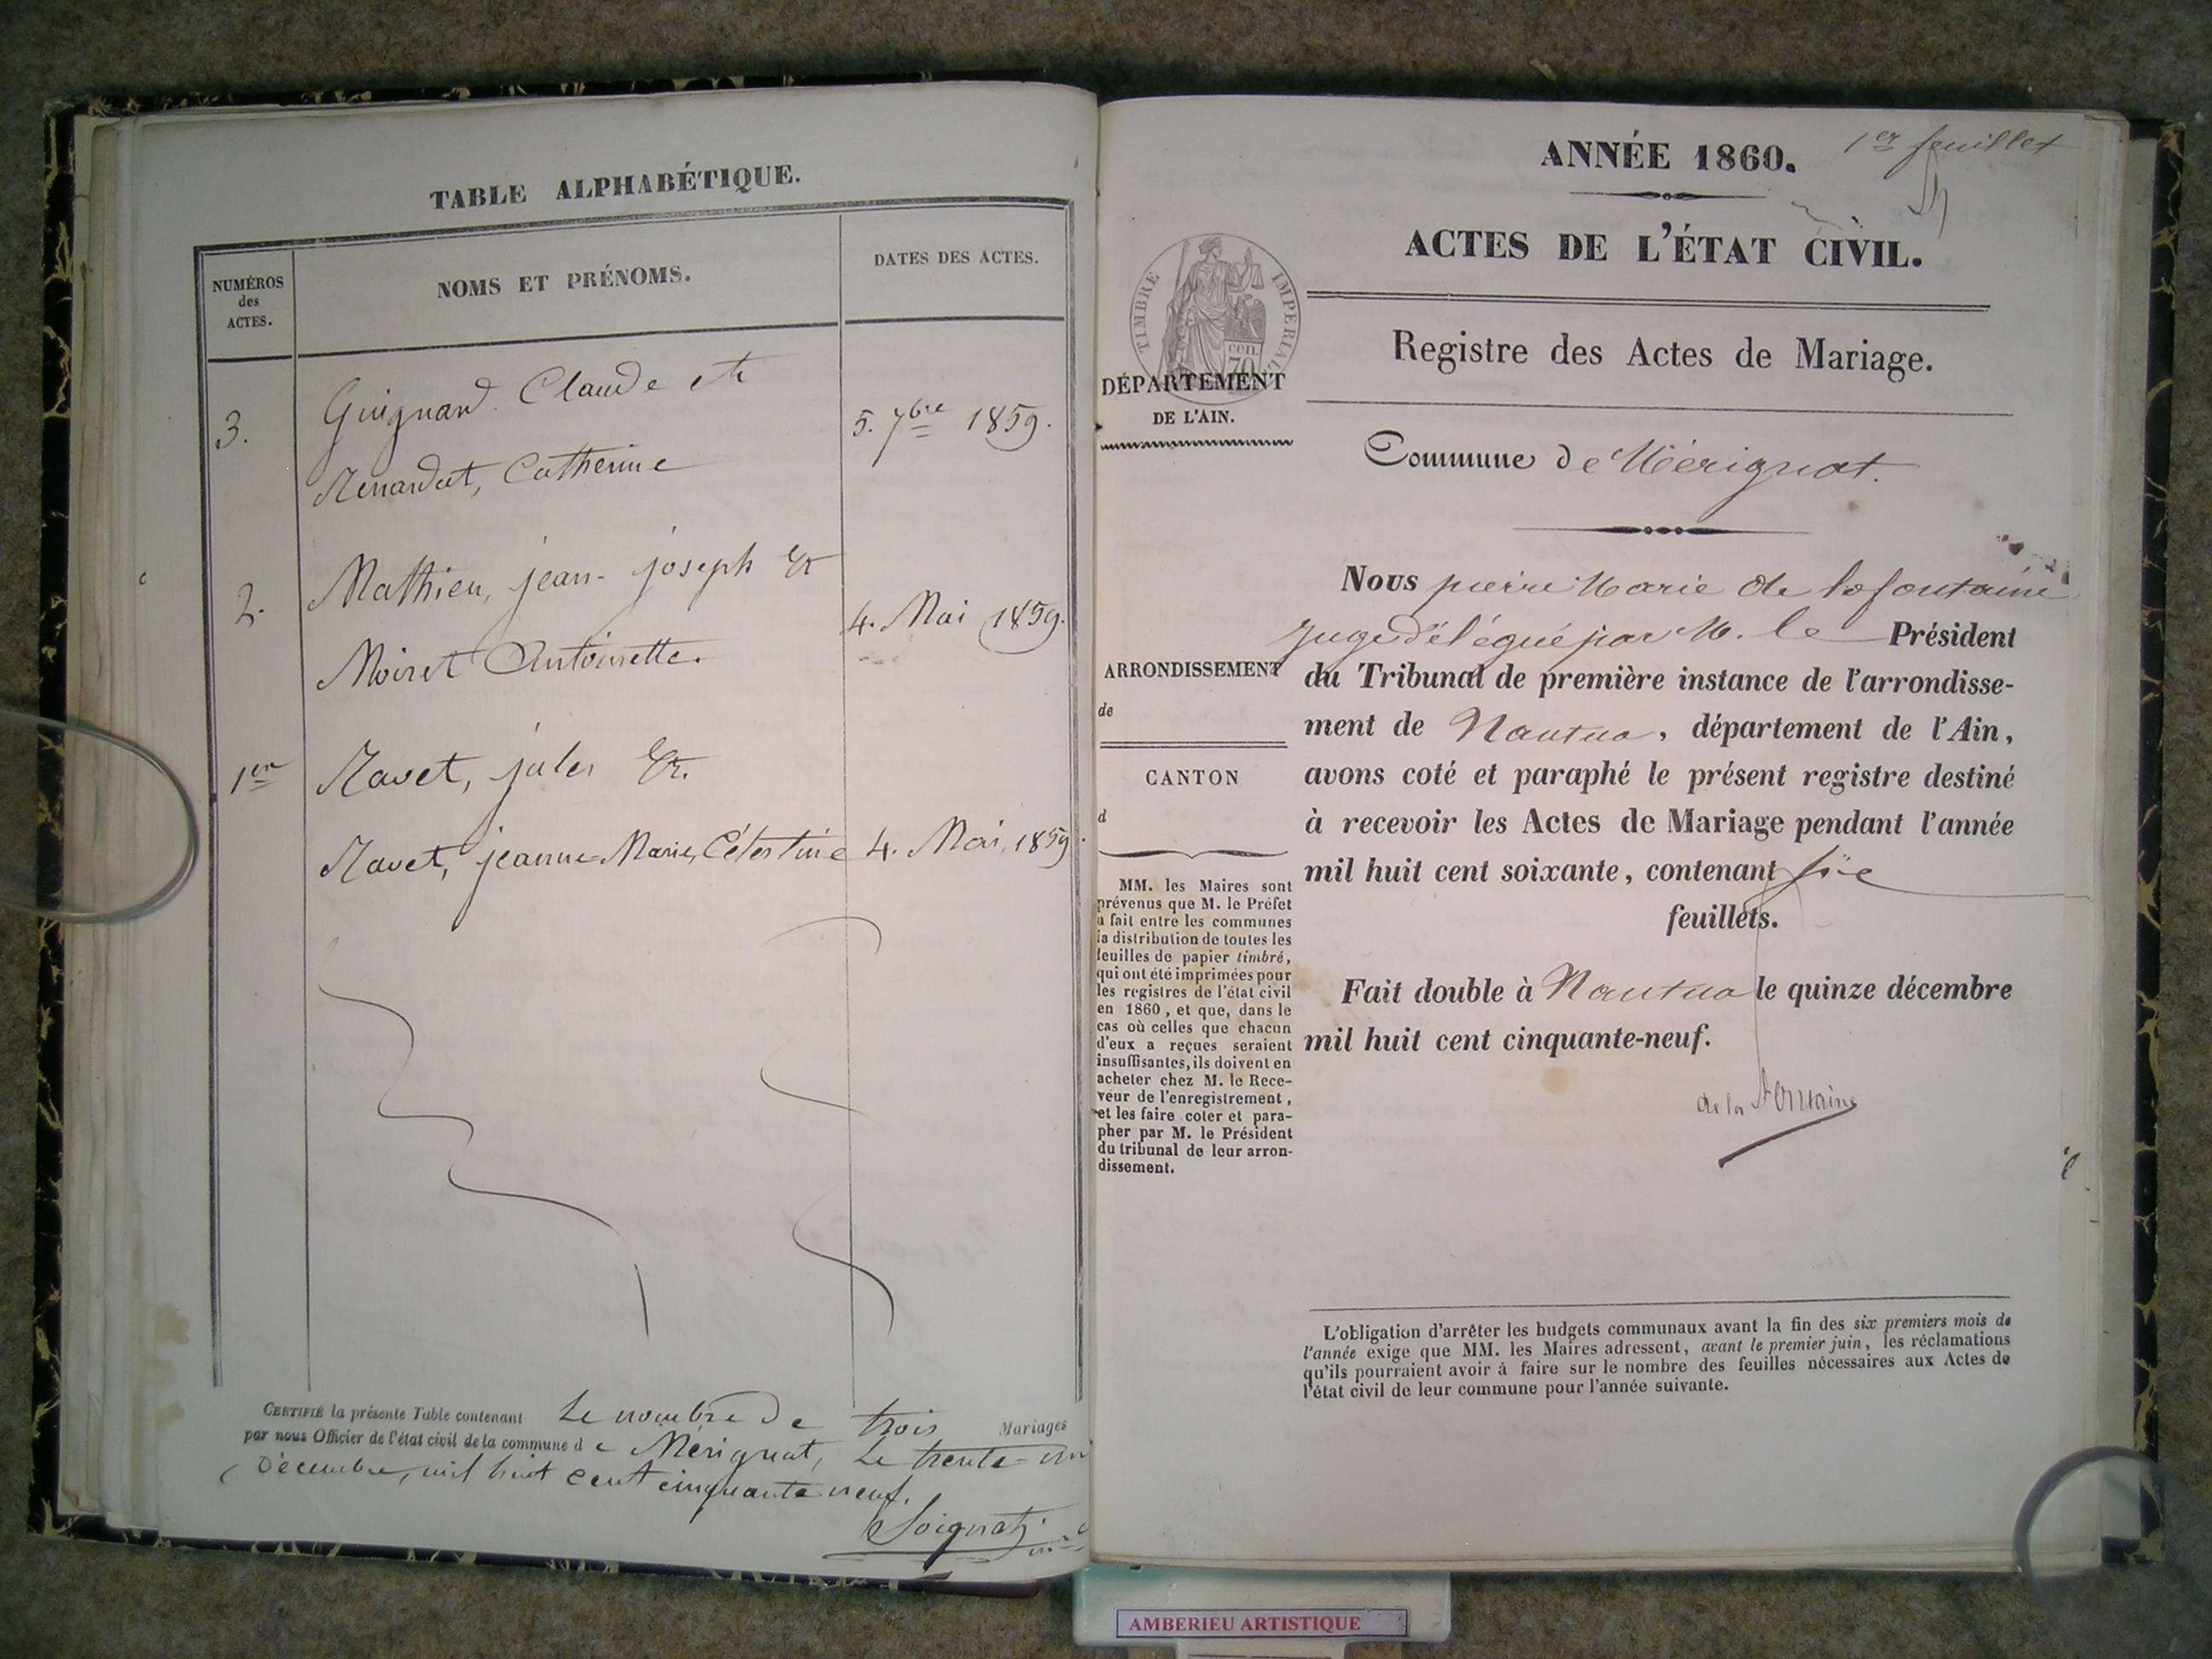 TABLE ALPHABÉTIQUE.
NUMÉROS
des
ACTES.
NOMS ET PRÉNOMS.
DATES DES ACTES.
3.
Guignard Claude et
Renardat, Catherine
5. 7bre 1859.
2.
Mathieu, jean-joseph &
Moiret Antoinette.
4. Mai 1859.
1er
Ravet, jules &.
Ravet, jeanne-Marie, Célestine 4. Mai, 1859.
CERTIFIÉ la présente Table contenant Le nombre de trois Mariages
par nous Officier de l'état civil de la commune d e Mérignat, Le trente-un
Décembre, mil huit cent cinquante neuf.
1er feuillet
ANNÉE 1860.
ACTES DE L'ÉTAT CIVIL.
TIMBRE IMPERIAL
70 cen.
Registre des Actes de Mariage.
DÉPARTEMENT
DE L'AIN.
Commune de Mérignat.
ARRONDISSEMENT
de
CANTON
d
MM. les Maires sont
prévenus que M. le Préfet
a fait entre les communes
la distribution de toutes les
feuilles de papier timbré,
qui ont été imprimées pour
les registres de l'état civil
en 1860, et que, dans le
cas où celles que chacun
d'eux a reçues seraient
insuffisantes, ils doivent en
acheter chez M. le Rece-
veur de l'enregistrement,
et les faire coter et para-
pher par M. le Président
du tribunal de leur arron-
dissement.
Nous pierre Marie de lafontaine
juge délégué par M. le Président
du Tribunal de première instance de l'arrondisse-
ment de Nantua, département de l'Ain,
avons coté et paraphé le présent registre destiné
à recevoir les Actes de Mariage pendant l'année
mil huit cent soixante, contenant six
feuillets.
Fait double à Nantua le quinze décembre
mil huit cent cinquante-neuf.
de la fontaine
L'obligation d'arrêter les budgets communaux avant la fin des six premiers mois de
l'année exige que MM. les Maires adressent, avant le premier juin, les réclamations
qu'ils pourraient avoir à faire sur le nombre des feuilles nécessaires aux Actes de
l'état civil de leur commune pour l'année suivante.
AMBERIEU ARTISTIQUE